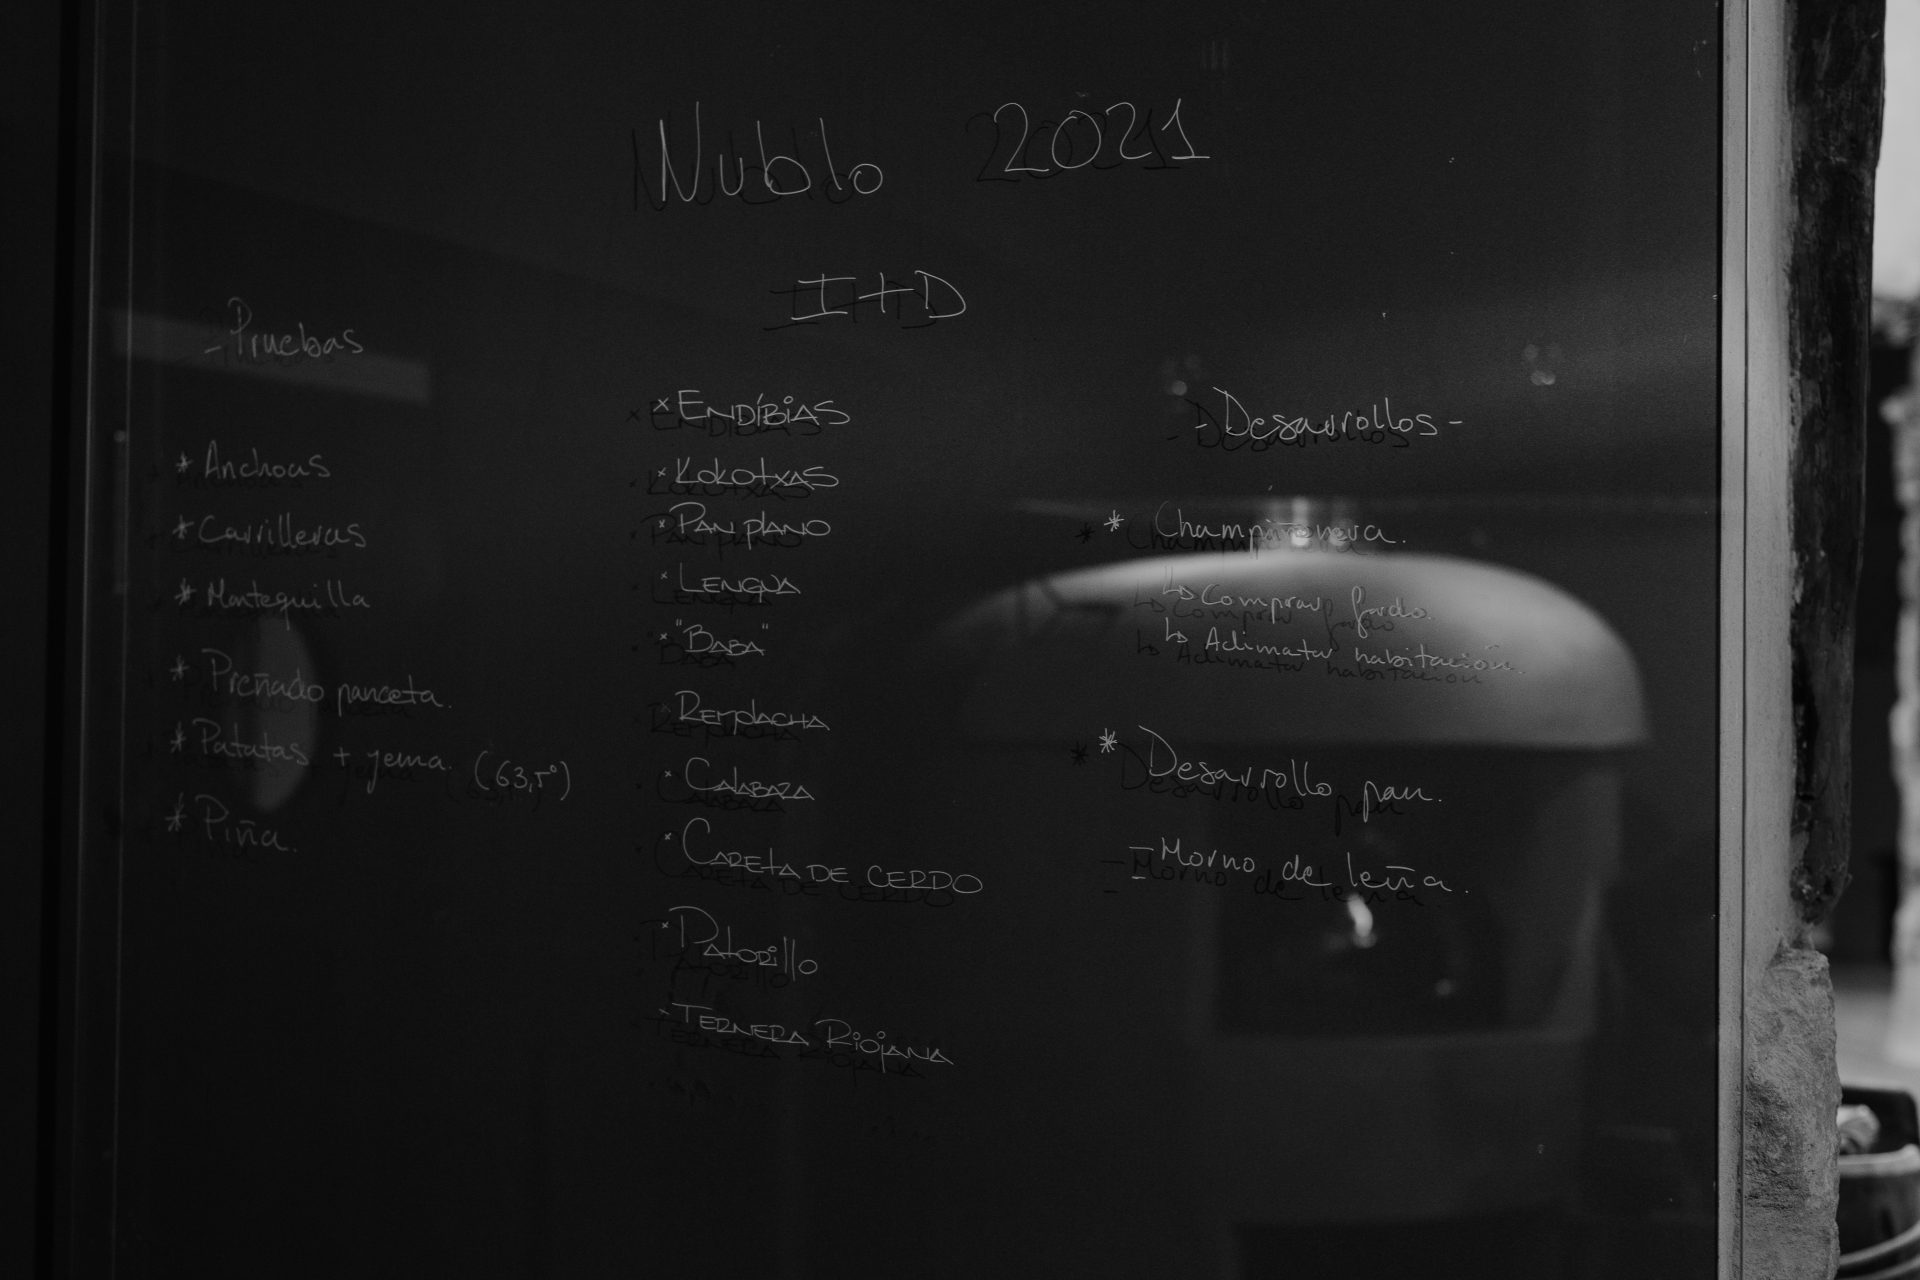 Nublo 2021
I+D
- Pruebas
* Anchoas
* Carrilleras
* Mantequilla
* Preñado panceta.
* Patatas + yema. (63,5º)
* Piña.
× ENDÍBIAS
× KOKOTXAS
× PAN PLANO
× LENGUA
× "BABA"
× REMOLACHA
× CALABAZA
× CARETA DE CERDO
× PATORILLO
× TERNERA RIOJANA
- Desarrollos -
* Champiñonera.
↳ Comprar fardo
↳ Aclimatar habitación.
* Desarrollo pan.
- Horno de leña.